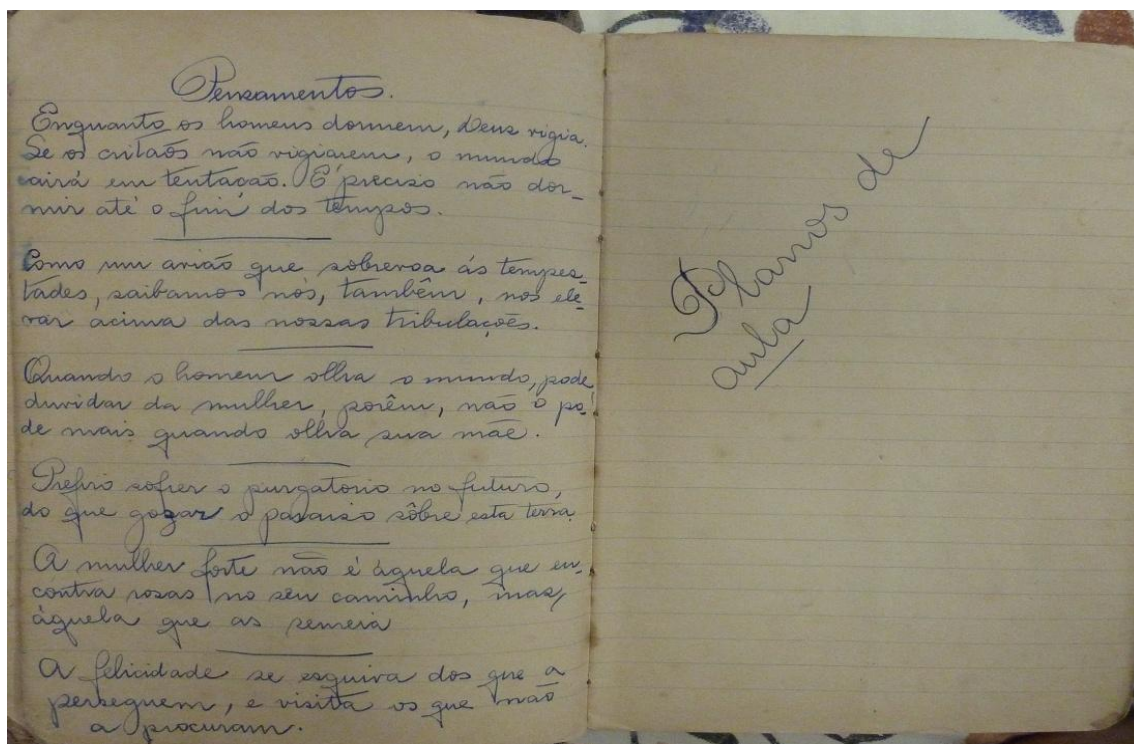 Pensamentos.
Enquanto os homens dormem, Deus vigia.
Se os critãos não vigiarem, o mundo
cairá em tentação. É preciso não dor-
mir até o fim dos tempos.
Como um avião que sobrevoa ás tempes-
tades, saibamos nós, também, nos ele-
var ácima das nossas tribulações.
Quando o homem olha o mundo, pode
duvidar da mulher, porêm, não o pó-
de mais quando olha sua mãe.
Prefiro sofrer o purgatorio no futuro,
do que gozar o paraiso sôbre esta terra
A mulher forte não é áquela que en-
contra rosas no seu caminho, mas,
áquela que as semeia
A felicidade se esquiva dos que a
perseguem, e visita os que não
a procuram.
Planos de
aula